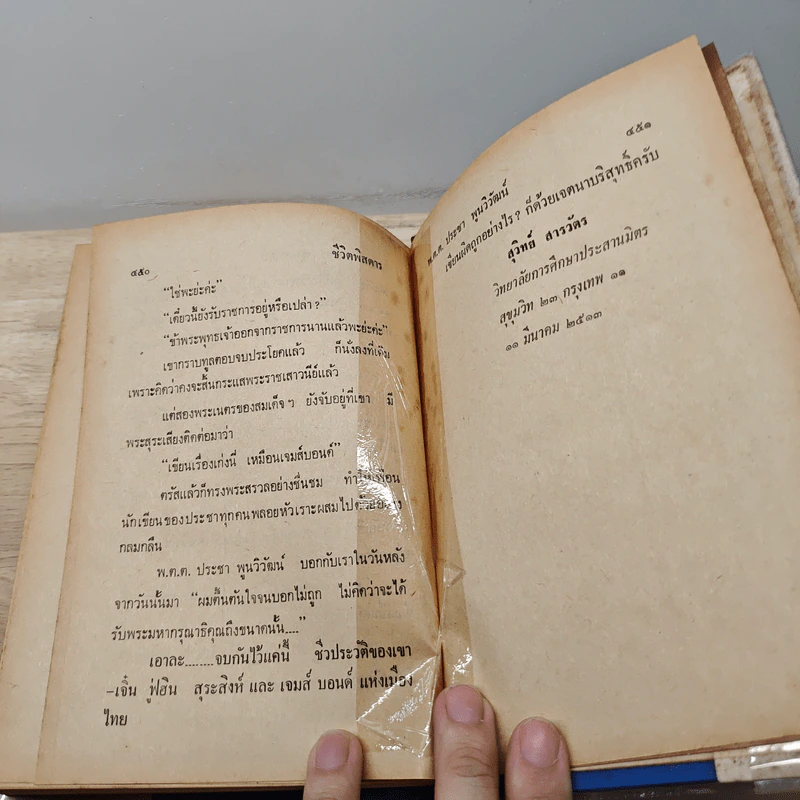 ๔๕๐ ชีวิตพิสดาร
“ใช่พะย่ะค่ะ”
“เดี๋ยวนี้ยังรับราชการอยู่หรือเปล่า?”
“ข้าพระพุทธเจ้าออกจากราชการนานแล้วพะย่ะค่ะ”
เขากราบทูลตอบจบประโยคแล้ว ก็นั่งลงที่เดิม
เพราะคิดว่าคงจะสิ้นกระแสพระราชเสาวนีย์แล้ว
แต่สองพระเนตรของสมเด็จฯ ยังจับอยู่ที่เขา มี
พระสุระเสียงติดต่อมาว่า
“เขียนเรื่องเก่งนี่ เหมือนเจมส์บอนด์”
ตรัสแล้วก็ทรงพระสรวลอย่างชื่นชม ทำให้เพื่อน
นักเขียนของประชาทุกคนพลอยหัวเราะผสมไปด้วยอย่าง
กลมกลืน
พ.ต.ต. ประชา พูนวิวัฒน์ บอกกับเราในวันหลัง
จากวันนั้นมา “ผมตื้นตันใจจนบอกไม่ถูก ไม่คิดว่าจะได้
รับพระมหากรุณาธิคุณถึงขนาดนั้น....”
เอาละ........จบกันไว้แค่นี้ ชีวประวัติของเขา
–เจิ๋น ฟู่ฮิน สุระสิงห์ และ เจมส์ บอนด์ แห่งเมือง
ไทย
๔๕๑
พ.ต.ต. ประชา พูนวิวัฒน์
เขียนผิดถูกอย่างไร? ก็ด้วยเจตนาบริสุทธิ์ครับ
สุวิทย์ สารวัตร
วิทยาลัยการศึกษาประสานมิตร
สุขุมวิท ๒๓ กรุงเทพ ๑๑
๑๑ มีนาคม ๒๕๑๓